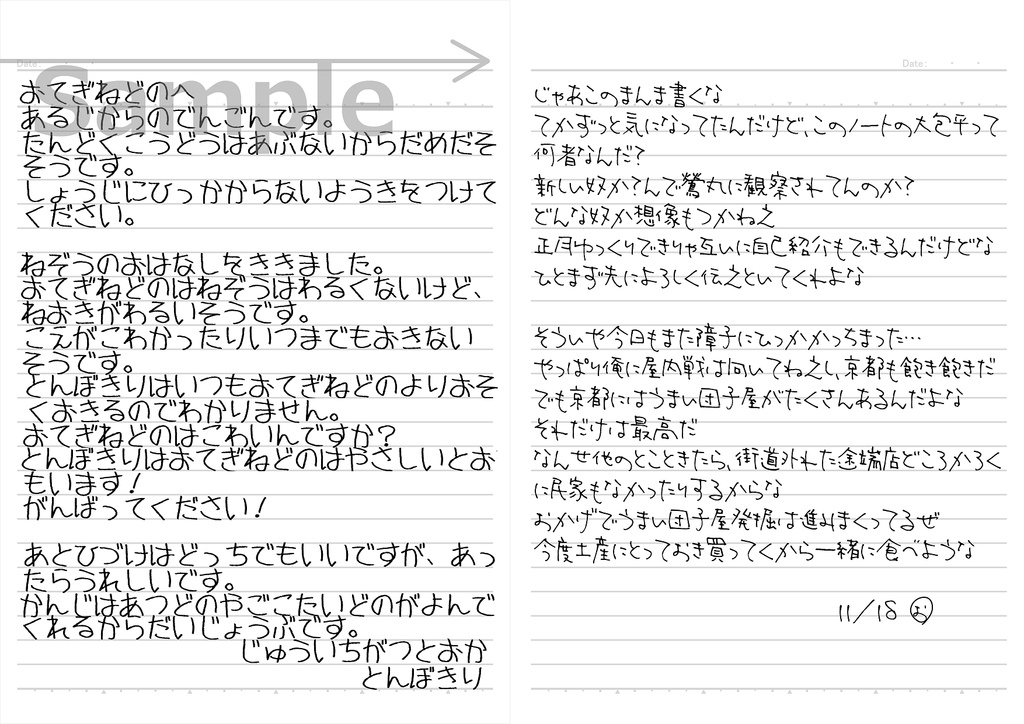 Date:
Sample
おてぎねどのへ
あるじからのでんごんです。
たんどくこうどうはあぶないからだめだそ
そうです。
しょうじにひっかからないようきをつけて
ください。
ねぞうのおはなしをききました。
おてぎねどのはねぞうはわるくないけど、
ねおきがわるいそうです。
こえがこわかったりいつまでもおきない
そうです。
とんぼきりはいつもおてぎねどのよりおそ
くおきるのでわかりません。
おてぎねどのはこわいんですか?
とんぼきりはおてぎねどのはやさしいとお
もいます!
がんばってください!
あとひづけはどっちでもいいですが、あっ
たらうれしいです。
かんじはあつどのやごこたいどのがよんで
くれるからだいじょうぶです。
じゅういちがつとおか
とんぼきり
Date:
じゃあこのまんま書くな
てかずっと気になってたんだけど、このノートの大包平って
何者なんだ?
新しい奴か?んで鶯丸に観察されてんのか?
どんな奴か想像もつかねえ
正月ゆっくりできりゃ互いに自己紹介もできるんだけどな
ひとまず先によろしく伝えといてくれよな
そういや今日もまた障子にひっかかっちまった…
やっぱり俺に屋内戦は向いてねえし、京都も飽き飽きだ
でも京都にはうまい団子屋がたくさんあるんだよな
それだけは最高だ
なんせ他のとこときたら、街道外れた途端店どころかろく
に民家もなかったりするからな
おかげでうまい団子屋発掘は進みまくってるぜ
今度土産にとっておき買ってくから一緒に食べような
11/18 お